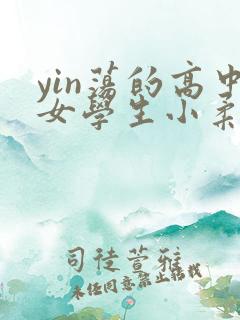 yin蕩的高中
女學生小
司徒萱雅
未經同意禁止轉載